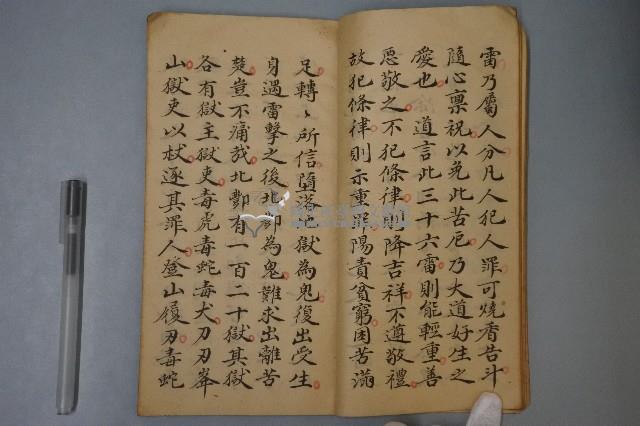 雷乃屬人分凡人犯人罪可燒香告斗
隨心禀祝以免此苦厄乃大道好生之
愛也 道言此三十六雷則能輕重善
惡敬之不犯條律則降吉祥不遵敬禮
故犯條律則示重罪陽責貧窮困苦滿
足轉〻所信墮 獄為鬼復出受生
身遇雷擊之後北酆為鬼難求出離苦
楚豈不痛哉北酆有一百二十獄其獄
各有獄主獄吏毒虎毒蛇毒犬刀刃峯
山獄吏以杖逐其罪人登山履刃毒蛇